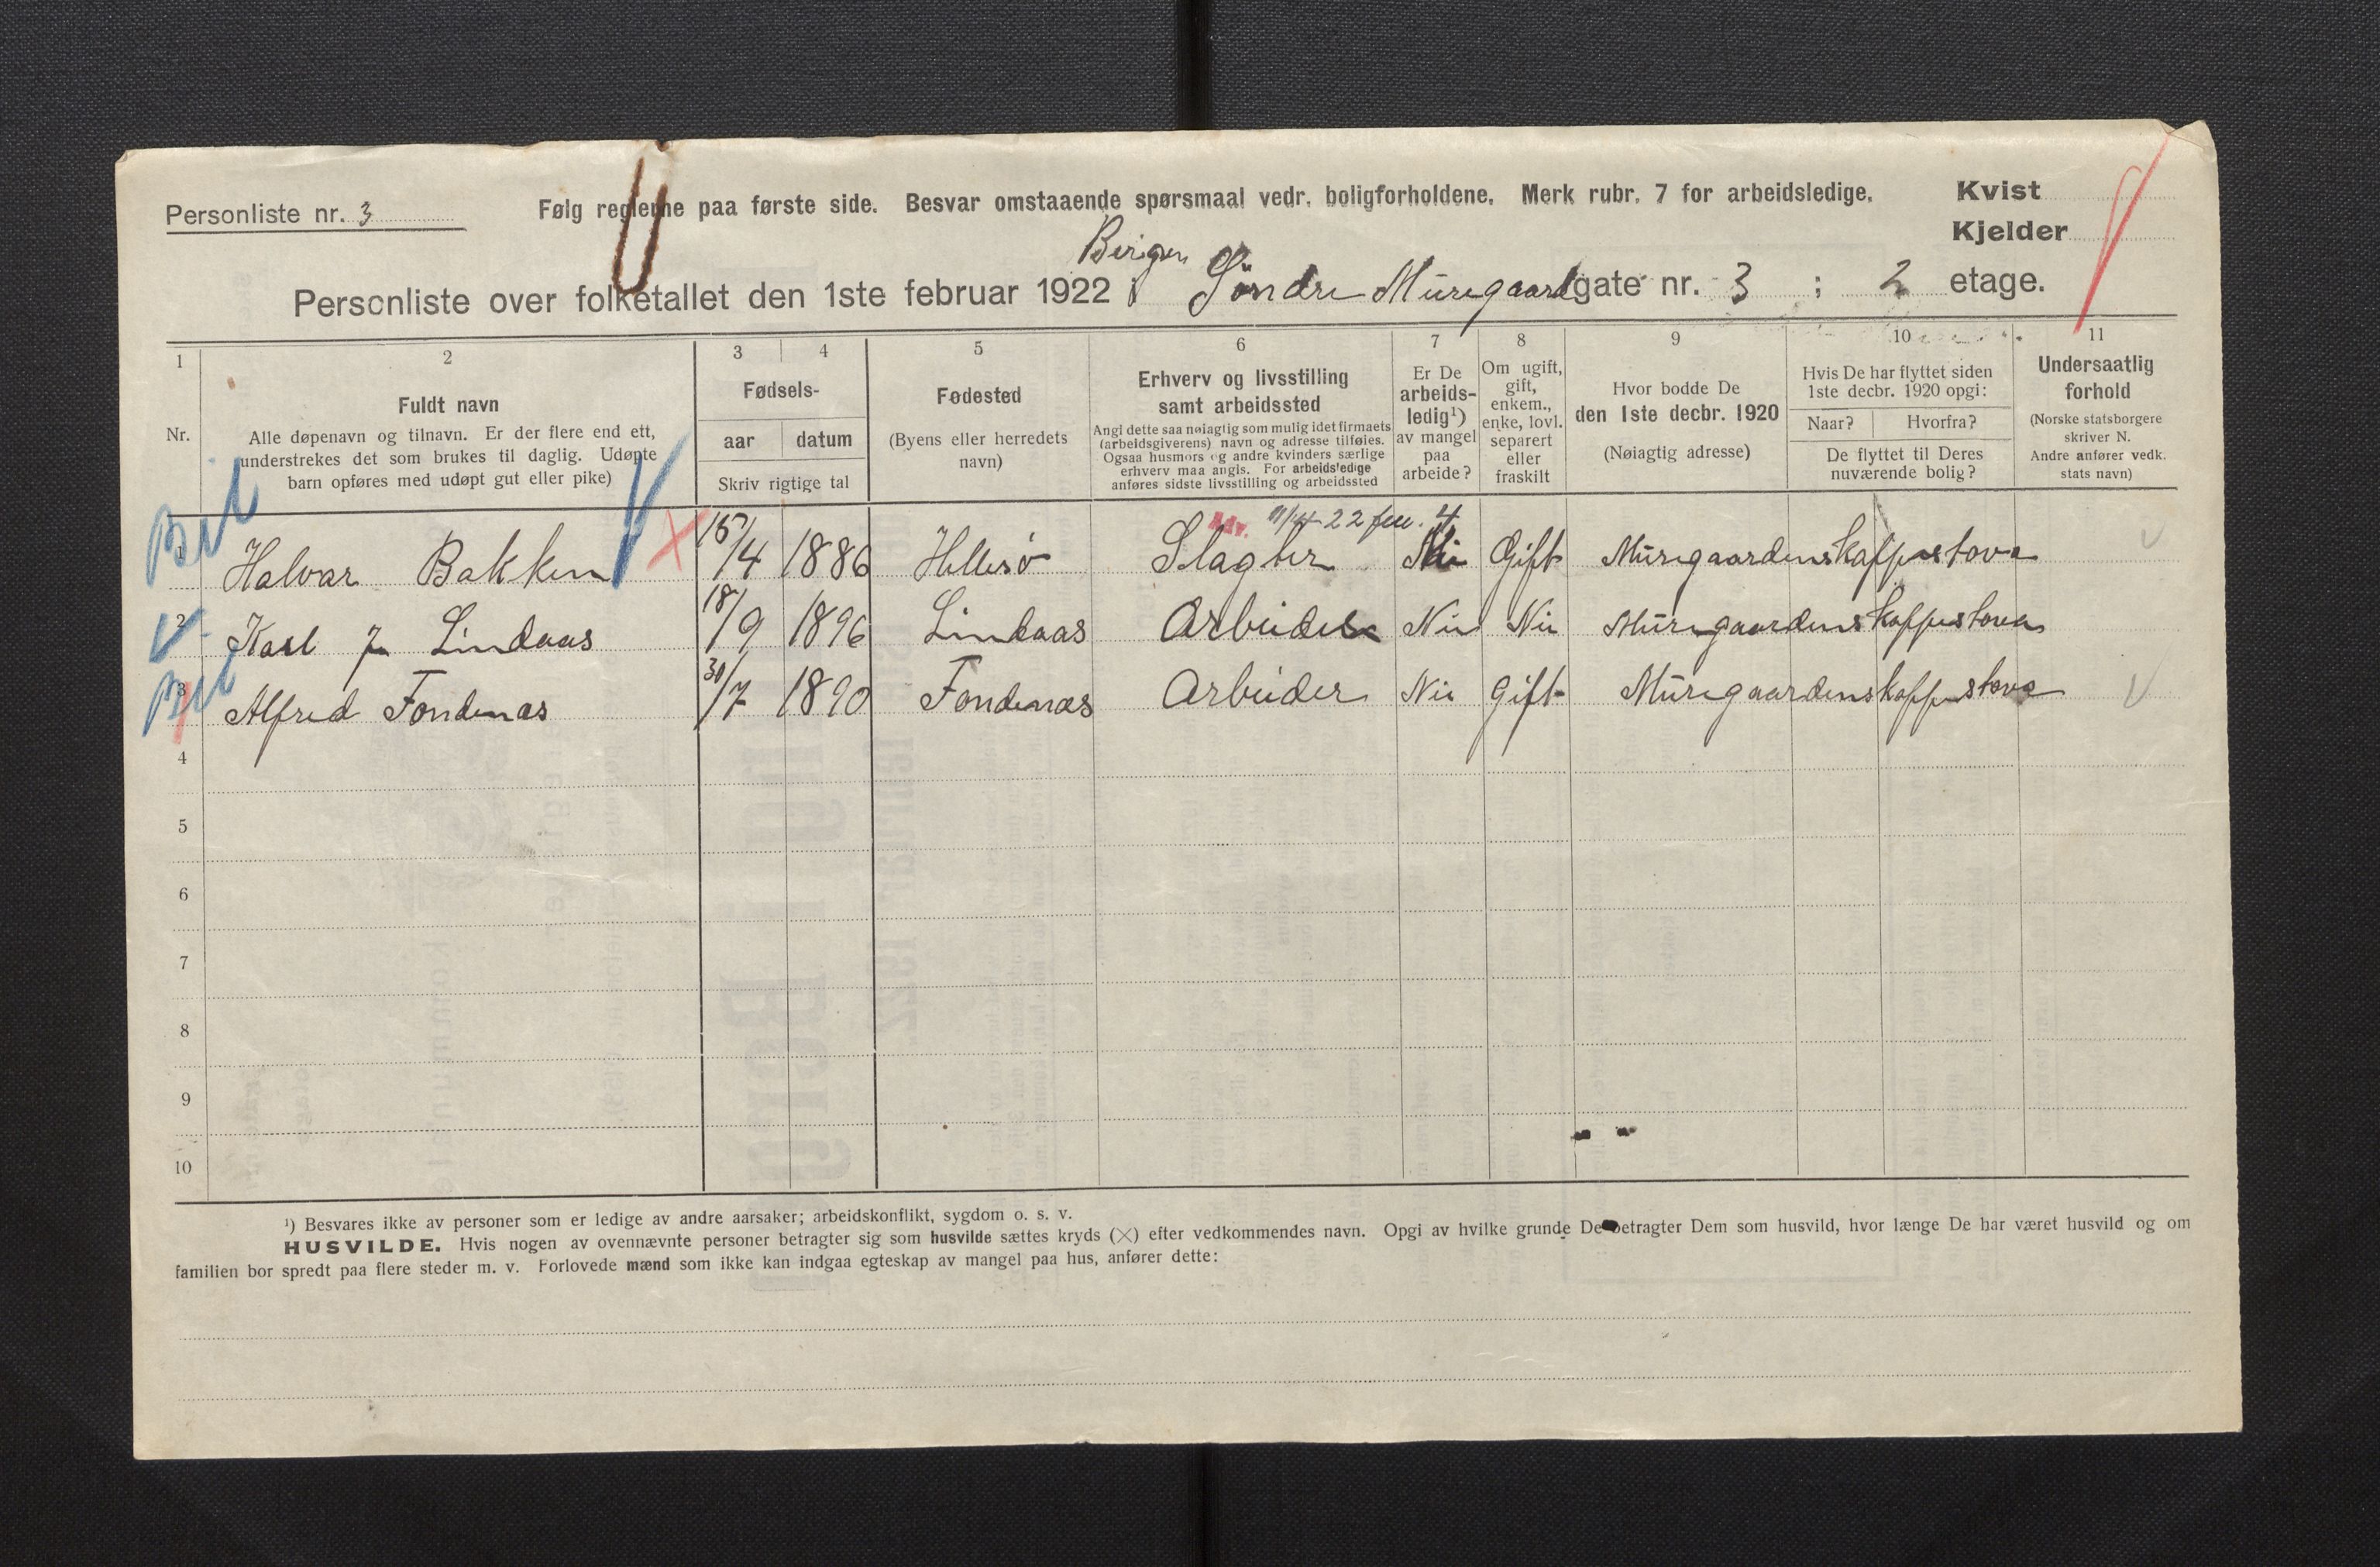 Personliste nr. 3
Følg reglerne paa første side. Besvar omstaaende spørsmaal vedr. boligforholdene. Merk rubr. 7 for arbeidsledige.
Kvist
Kjelder
Bergen
Personliste over folketallet den 1ste februar 1922 i Söndre Muregaardgate nr. 3 ; 2 etage.
1 2 3 4 5 6 7 8 9 10 11
Nr.
Fuldt navn
Alle døpenavn og tilnavn. Er der flere end ett,
understrekes det som brukes til daglig. Udøpte
barn opføres med udøpt gut eller pike)
Fødsels-
aar datum
Skriv rigtige tal
Fødested
(Byens eller herredets
navn)
Erhverv og livsstilling
samt arbeidssted
Angi dette saa nøiagtig som mulig idet firmaets
(arbeidsgiverens) navn og adresse tilføies.
Ogsaa husmors og andre kvinders særlige
erhverv maa angis. For arbeidsledige
anføres sidste livsstilling og arbeidssted
Er De
arbeids-
ledig¹)
av mangel
paa
arbeide?
Om ugift,
gift,
enkem.,
enke, lovl.
separert
eller
fraskilt
Hvor bodde De
den 1ste decbr. 1920
(Nøiagtig adresse)
Hvis De har flyttet siden
1ste decbr. 1920 opgi:
Naar? Hvorfra?
De flyttet til Deres
nuværende bolig?
Undersaatlig
forhold
(Norske statsborgere
skriver N.
Andre anfører vedk.
stats navn)
1 Halvar Bakken 15/4 1886 Hellesø Slagter Nei Gift Muregaardenskaffestova
2 Karl J Lindaas 18/9 1896 Lindaas Arbeider Nei Nei Muregaardenskaffestova
3 Alfred Fondenæs 30/7 1890 Fondenæs Arbeider Nei Gift Muregaardenskaffestova
4
5
6
7
8
9
10
¹) Besvares ikke av personer som er ledige av andre aarsaker; arbeidskonflikt, sygdom o. s. v.
HUSVILDE. Hvis nogen av ovennævnte personer betragter sig som husvilde sættes kryds (×) efter vedkommendes navn. Opgi av hvilke grunde De betragter Dem som husvild, hvor længe De har været husvild og om
familien bor spredt paa flere steder m. v. Forlovede mænd som ikke kan indgaa egteskap av mangel paa hus, anfører dette: